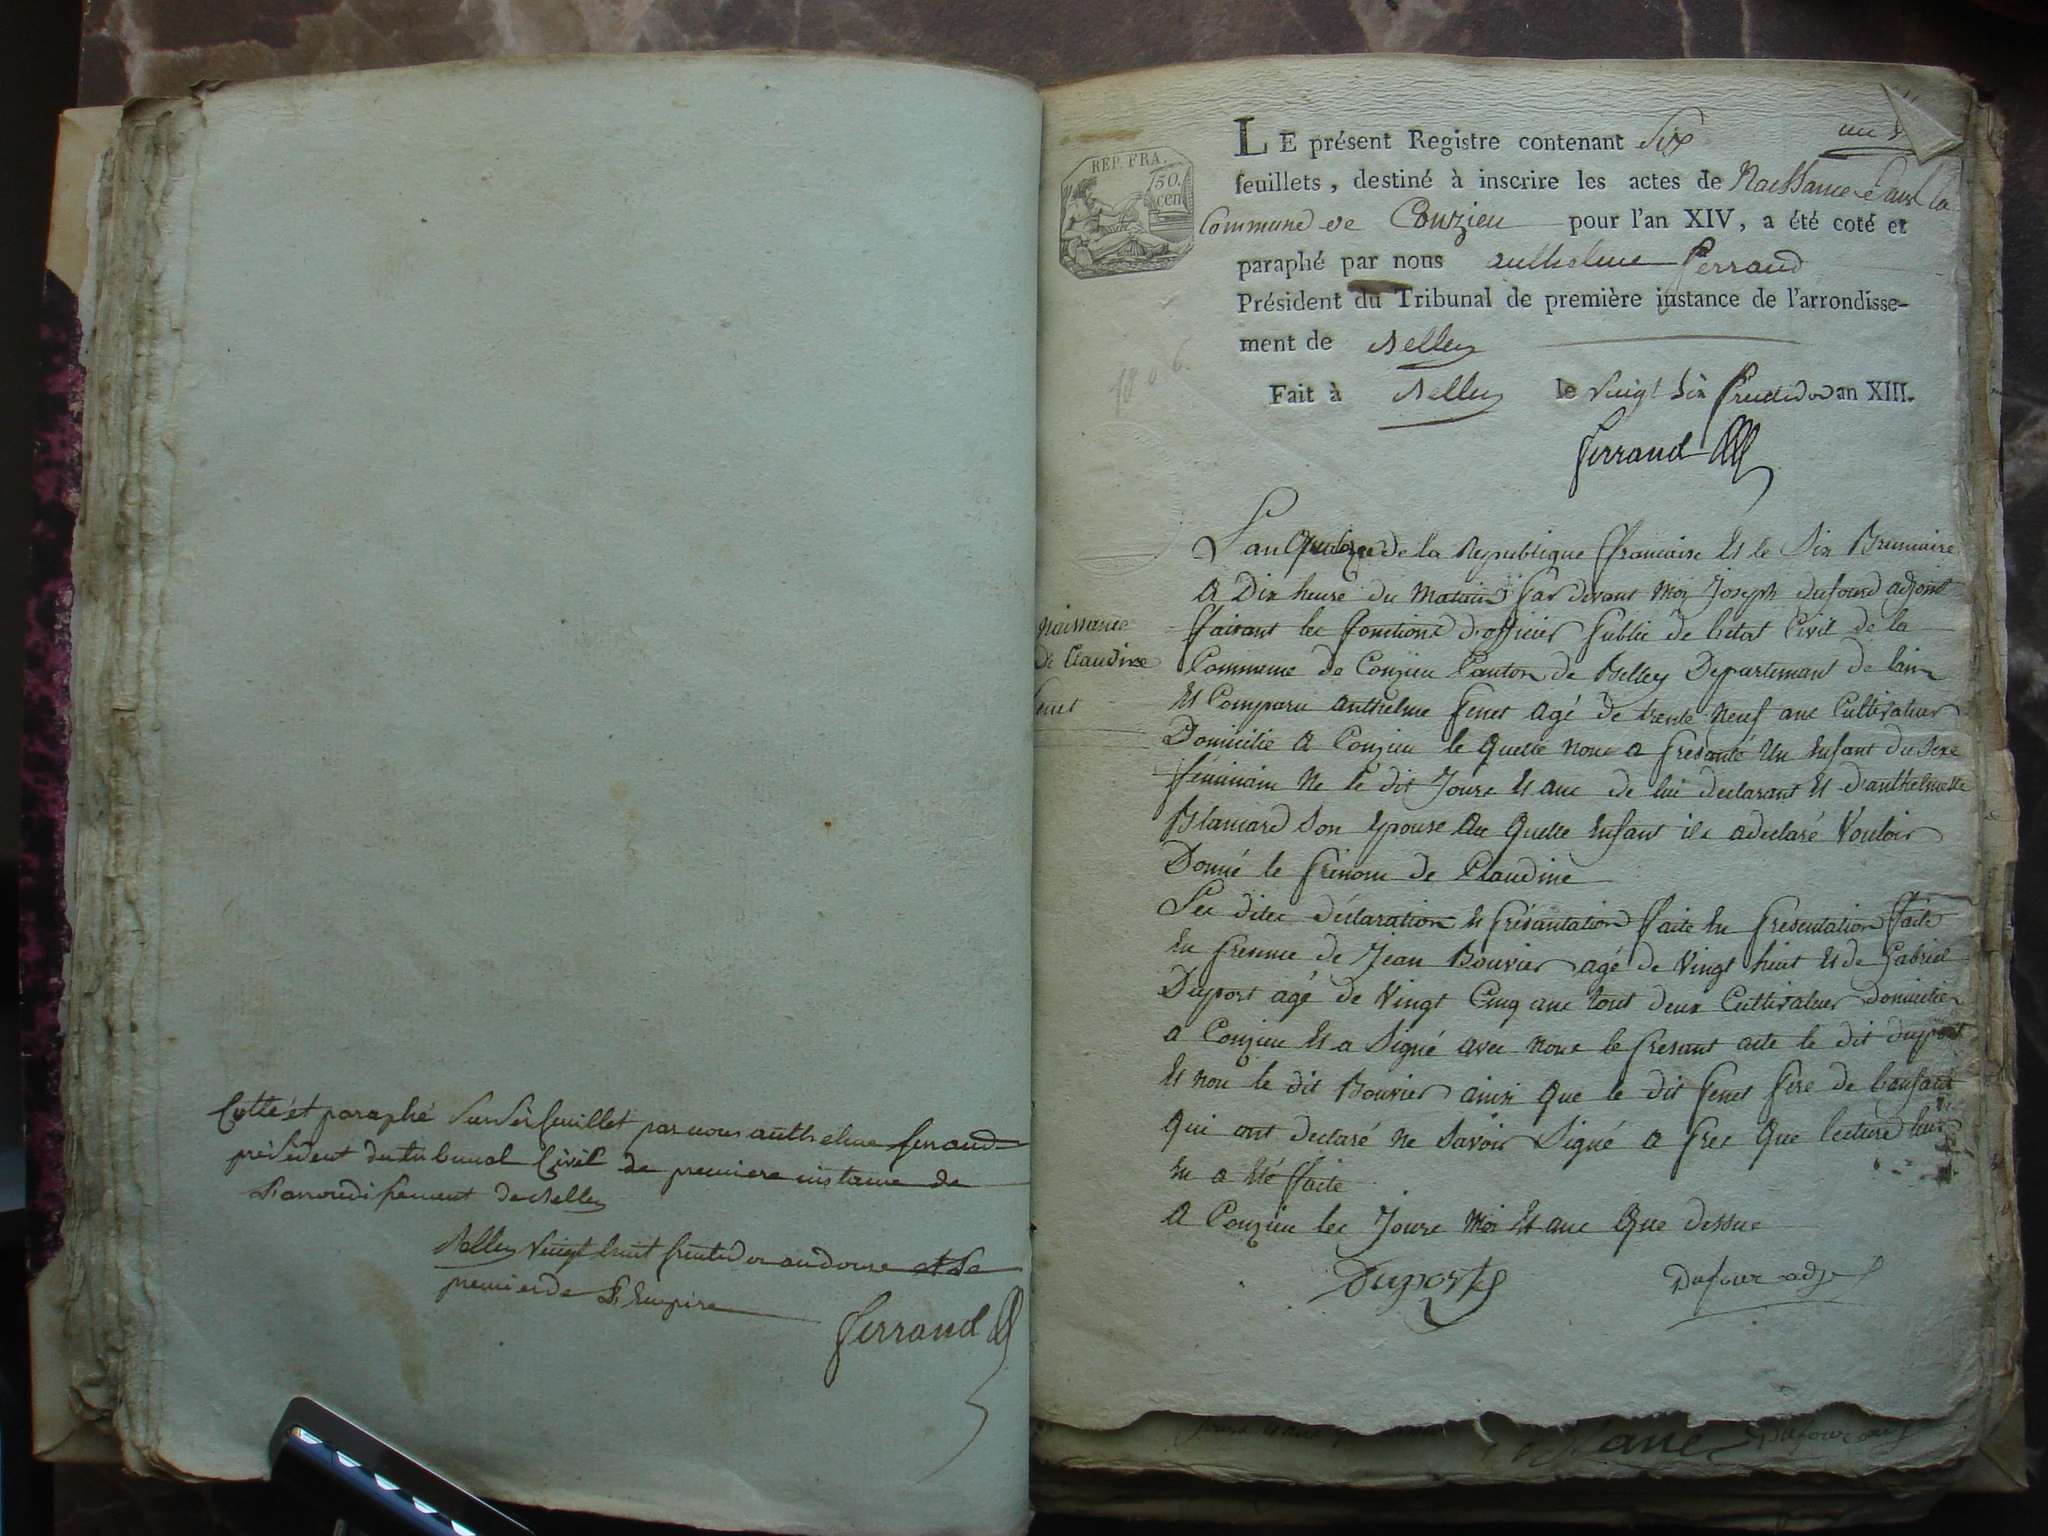 Cotté et paraphé sur six feuillet par nous anthelme ferrand
président du tribunal Civil de premiere instance de
l'arrondissement de Belley
Belley vingt huit fructidor an douze et le
premier de l'Empire
ferrand
REP. FRA.
50.
cen
LE présent Registre contenant Six
feuillets, destiné à inscrire les actes de Naissance dans la
Commune de Conzieu pour l'an XIV, a été coté et
paraphé par nous anthelme ferrand
Président du Tribunal de première instance de l'arrondisse-
ment de Belley
1806
Fait à Belley le vingt six fructidor an XIII.
ferrand
L'an Quatorze de la Republique ffrancaise Et le Six Brumaire
A Dix heure du Matain Par devant Moi Joseph dufour adjoint
ffaisant les fonctions d'officier Public de l'etat Civil de la
Commune de Conzieu Canton de Belley Departemant de lain
Et Comparu anthelme fenet Agé de trente Neuf ans Cultivateur
Domicilié A Conzieu le quelle nous a Presanté Un Enfant du Sexe
fféminain Ne le dit Jours Et ans de lui declarant Et d'anthelmette
Blancard Son Epouse Au quelle Enfant ils a declaré Vouloir
Donné le Prénom de Claudine
Naissance
de Claudine
fenet
Les dites déclaration Et Présantation ffaite En Presentation ffaite
En Presence de Jean Bouvier agé de Vingt huit Et de Gabriel
Duport agé de Vingt Cinq ans tout deux Cultivateur Domicilié
a Conzieu Et a Signé avec nous le Presant acte le dit duport
Et non le dit Bouvier ainsi que le dit fenet Pere de lanfant
Qui ont declaré Ne Savoir Signé A Pres Que lecture leur
En a Eté ffaite
A Conzieu les Jours Moi Et ans Que dessus
Duport
Dufour adj
Dufour adj